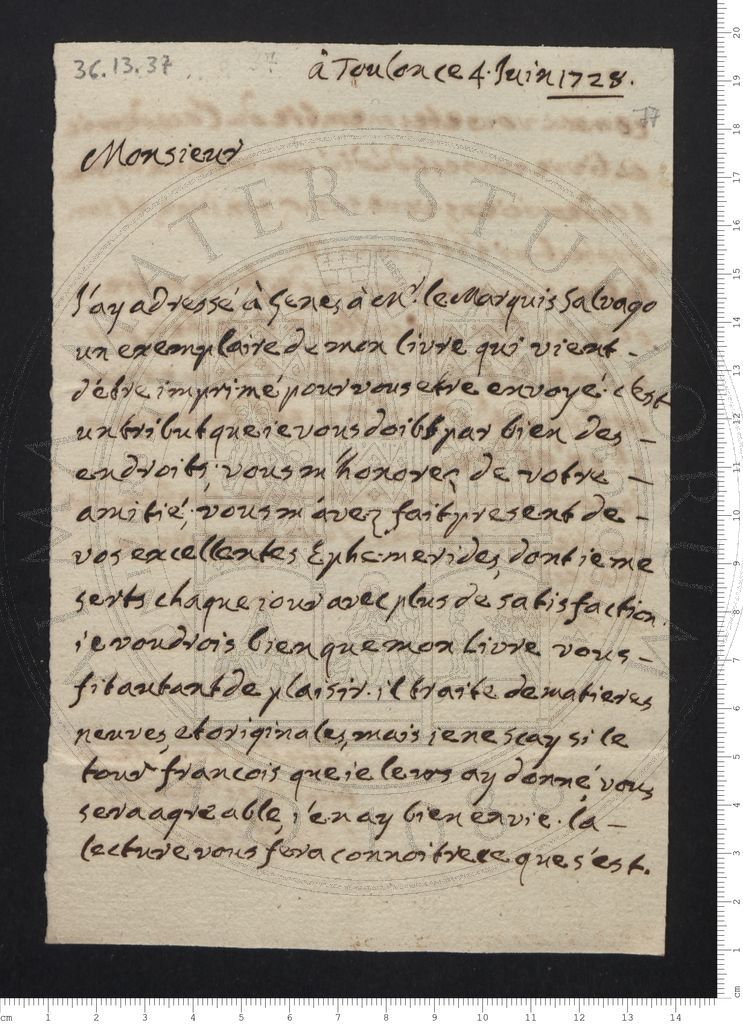 36.13.37
à Toulon ce 4. Juin 1728.
77
Monsieur
J'ay adressé à Genes à Mr. le Marquis Salvago
un exemplaire de mon livre qui vient -
d'être imprimé pour vous etre envoyé. c'est
un tribut que ie vous doibs par bien des -
endroits; vous m'honorez de votre -
amitié, vous m'avez fait present de -
vos excellentes Ephemerides, dont ie me
serts chaque iour avec plus de satisfaction.
ie voudrois bien que mon livre vous -
fit autant de plaisir. il traite de matieres
neuves et originales, mais ie ne sçay si le
tour francois que ie leurs ay donné vous
sera agreable, i'en ay bien envie. la -
lecture vous fera connoitre ce que s'est.